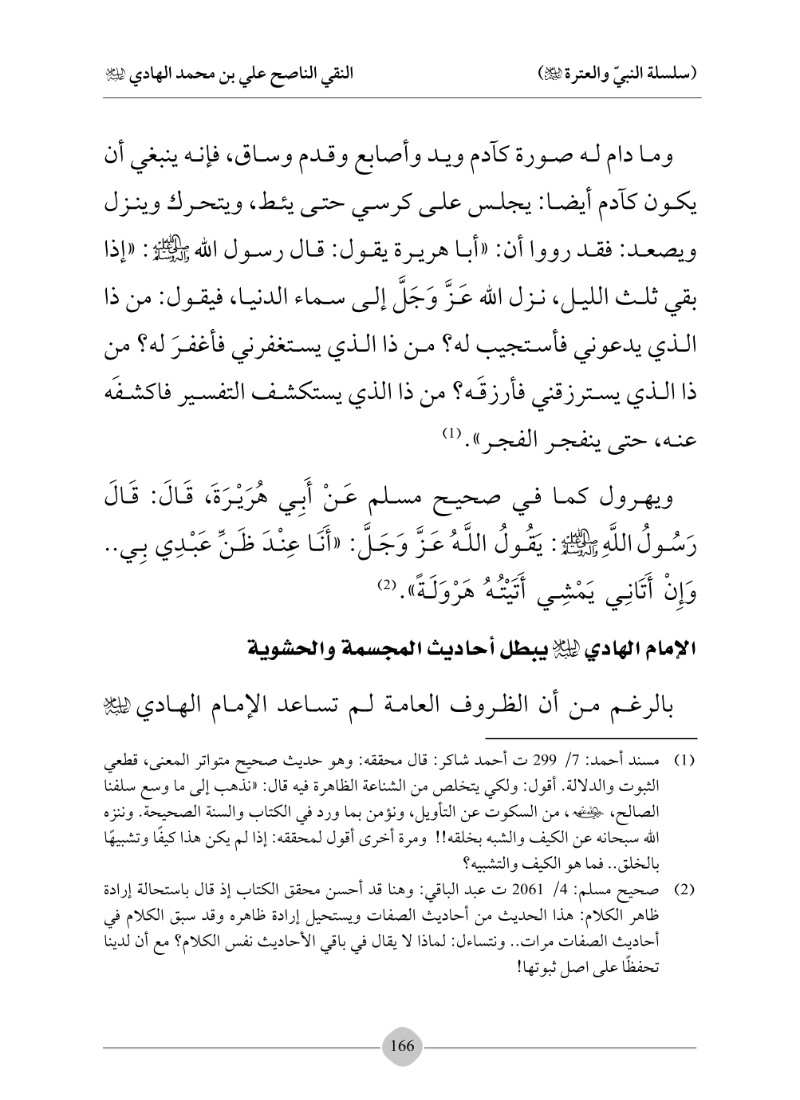 (سلسلة النبيّ والعترة ﷺ) النقي الناصح علي بن محمد الهادي عليه السلام
وما دام له صورة كآدم ويد وأصابع وقدم وساق، فإنه ينبغي أن
يكون كآدم أيضا: يجلس على كرسي حتى يئط، ويتحرك وينزل
ويصعد: فقد رووا أن: «أبا هريرة يقول: قال رسول الله ﷺ: «إذا
بقي ثلث الليل، نزل الله عَزَّ وَجَلَّ إلى سماء الدنيا، فيقول: من ذا
الذي يدعوني فأستجيب له؟ من ذا الذي يستغفرني فأغفرَ له؟ من
ذا الذي يسترزقني فأرزقَه؟ من ذا الذي يستكشف التفسير فاكشفَه
عنه، حتى ينفجر الفجر».(1)
ويهرول كما في صحيح مسلم عَنْ أَبِي هُرَيْرَةَ، قَالَ: قَالَ
رَسُولُ اللَّهِ ﷺ: يَقُولُ اللَّهُ عَزَّ وَجَلَّ: «أَنَا عِنْدَ ظَنِّ عَبْدِي بِي..
وَإِنْ أَتَانِي يَمْشِي أَتَيْتُهُ هَرْوَلَةً».(2)
الإمام الهادي عليه السلام يبطل أحاديث المجسمة والحشوية
بالرغم من أن الظروف العامة لم تساعد الإمام الهادي عليه السلام
(1) مسند أحمد: 7/ 299 ت أحمد شاكر: قال محققه: وهو حديث صحيح متواتر المعنى، قطعي
الثبوت والدلالة. أقول: ولكي يتخلص من الشناعة الظاهرة فيه قال: «نذهب إلى ما وسع سلفنا
الصالح، رضي الله عنهم، من السكوت عن التأويل، ونؤمن بما ورد في الكتاب والسنة الصحيحة. وننزه
الله سبحانه عن الكيف والشبه بخلقه!! ومرة أخرى أقول لمحققه: إذا لم يكن هذا كيفًا وتشبيهًا
بالخلق.. فما هو الكيف والتشبيه؟
(2) صحيح مسلم: 4/ 2061 ت عبد الباقي: وهنا قد أحسن محقق الكتاب إذ قال باستحالة إرادة
ظاهر الكلام: هذا الحديث من أحاديث الصفات ويستحيل إرادة ظاهره وقد سبق الكلام في
أحاديث الصفات مرات.. ونتساءل: لماذا لا يقال في باقي الأحاديث نفس الكلام؟ مع أن لدينا
تحفظًا على اصل ثبوتها!
166